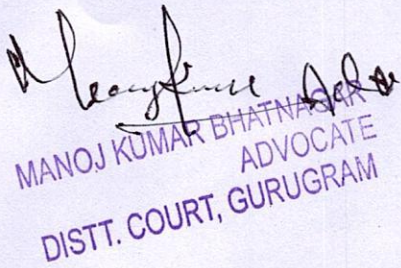 MANOJ KUMAR BHATNAGAR
ADVOCATE
DISTT. COURT, GURUGRAM